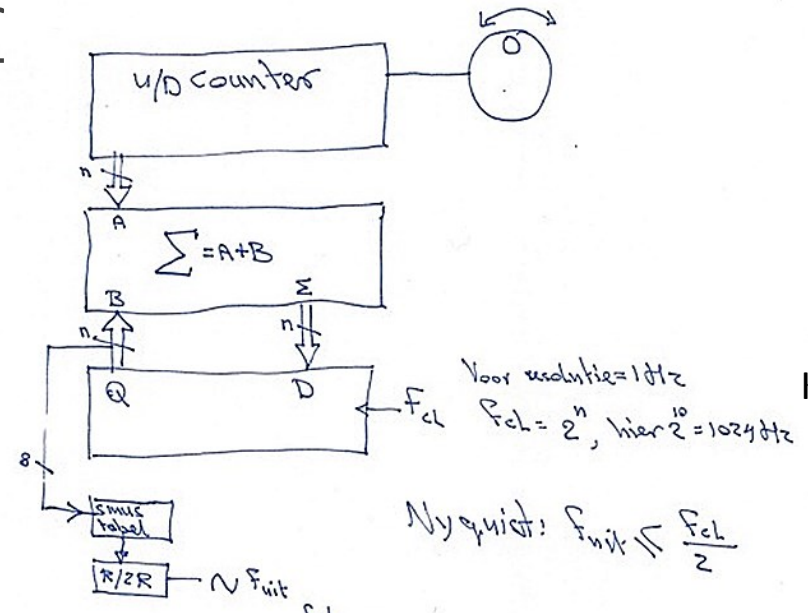 U/D Counter
n
A
Σ=A+B
B
Σ
n
n
Q
D
Fcl
Voor resolutie=1Hz
Fcl = 2ⁿ, hier 2¹⁰=1024Hz
8
sinus
tabel
Nyquist: Fuit ≤ Fcl/2
R/2R
~ Fuit